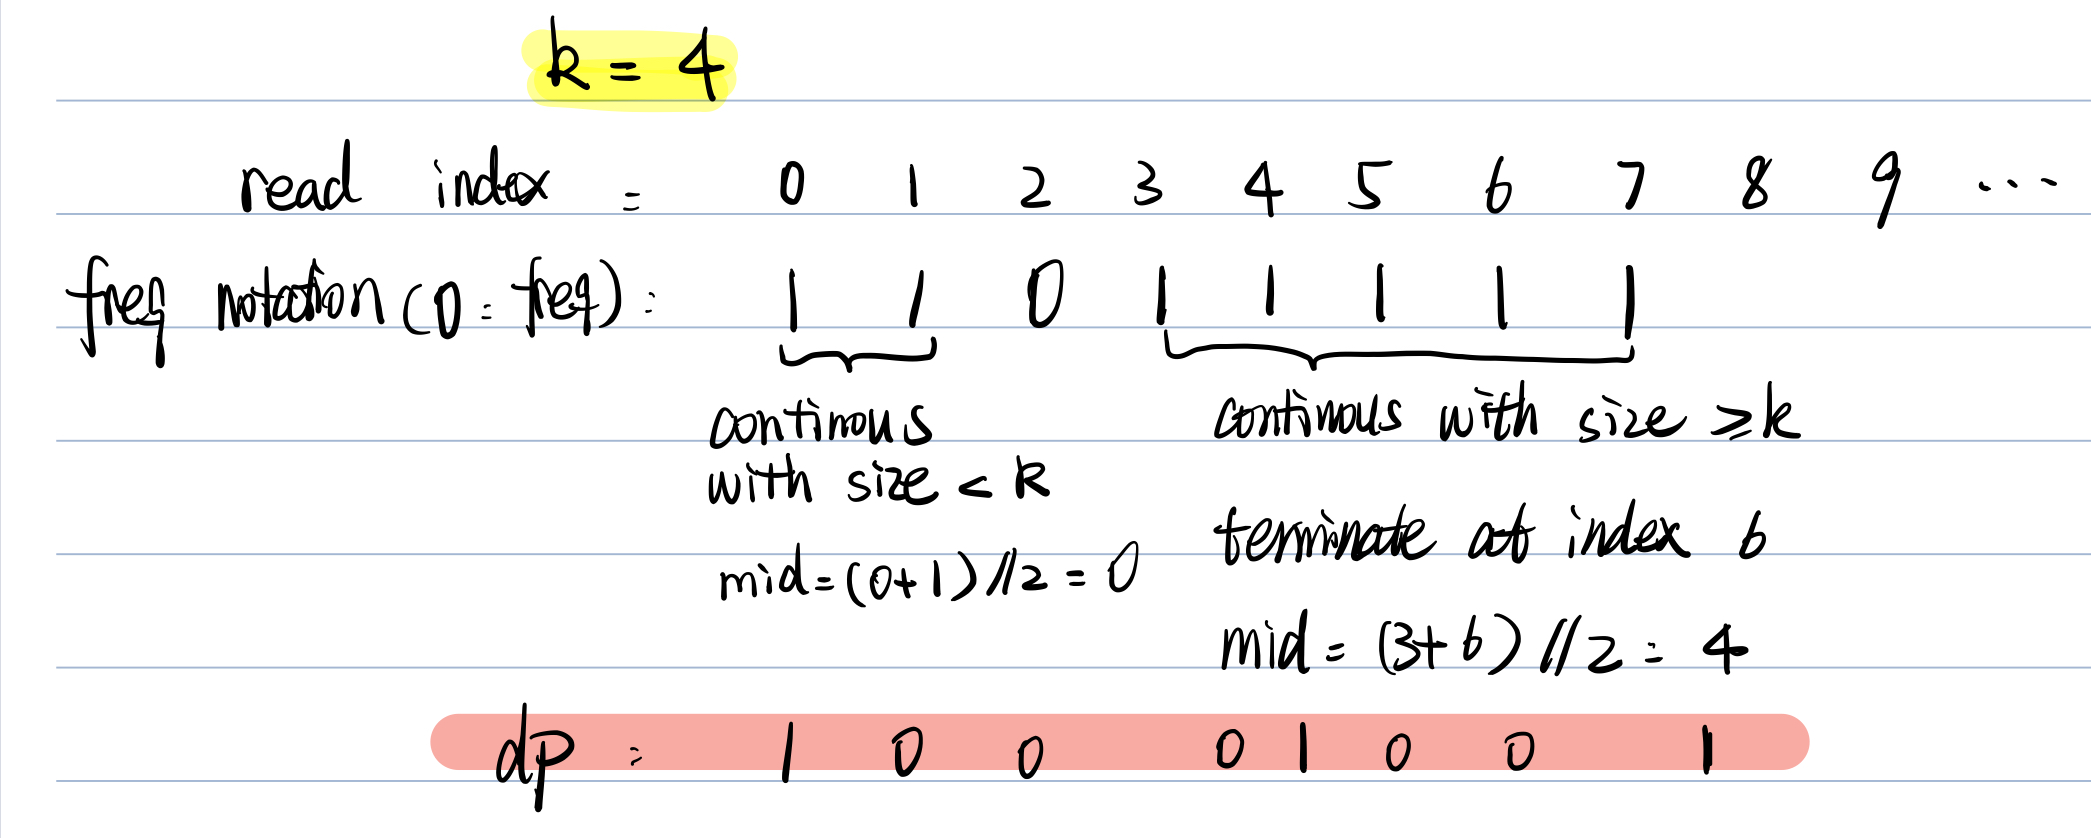 k = 4
read index : 0 1 2 3 4 5 6 7 8 9 ...
freq notation (0 = freq) : 1 1 0 1 1 1 1 1
continous
with size < k
mid = (0+1) // 2 = 0
continous with size ≥ k
terminate at index 6
mid = (3+6) // 2 = 4
dp : 1 0 0 0 1 0 0 1